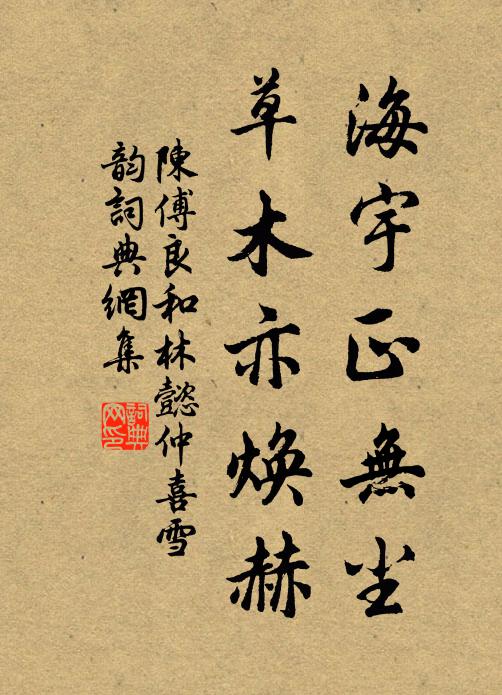 海宇正無尘
草木亦煥赫
陳傅良和林懿仲喜雪
韵詞典網集
詞典网印